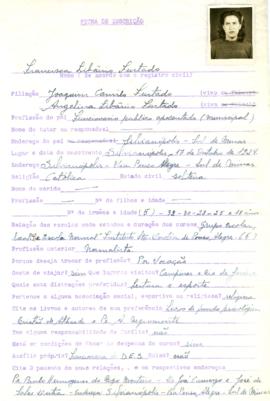 FICHA DE INSCRIÇÃO
Francisca Libânio Furtado
Nome ( de acordo com o registro civil)
Filiação Joaquim Camilo Furtado (vivo
Angelina Libânio Furtado (viva
Profissão do pai Funcionário público aposentado (Municipal)
Nome do tutor ou responsável
Endereço do pai Silvianópolis - Sul de Minas
Lugar e data do nascimento Silvianópolis - 17 de Outubro de 1924
Endereço Silvianópolis - Via Pouso Alegre - Sul de Minas
Religião Católica Estado civil solteira
Nome do marido
Profissão Nº de filhos e idade
Nº de irmãos e idade (5) - 33-30-28-25 e 18 anos
Relação das escolas onde estudou e duração dos cursos Grupo Escolar,
Escola Normal "Instituto Sta. Dorotéia de Pouso Alegre
Profissão anterior Normalista
Porque deseja trocar de profissão? Por Vocação
Gosta de viajar? sim Que lugares visitou? Campinas e Rio de Janeiro
Quais suas distrações preferidas? Leitura e esporte
Pertence a alguma associação social, esportiva ou religiosa? religiosa
Cite os livros e autores de sua preferência Livros de fundo psicológico
Tristão de Athayde e Pe. Negromonte
Tem alguma responsabilidade de família? não
Está em condições de fazer as despesas do curso? sim
Auxílio próprio? D E S Bolsa? não
Cite 3 pessoas de suas relações, e os respectivos endereços